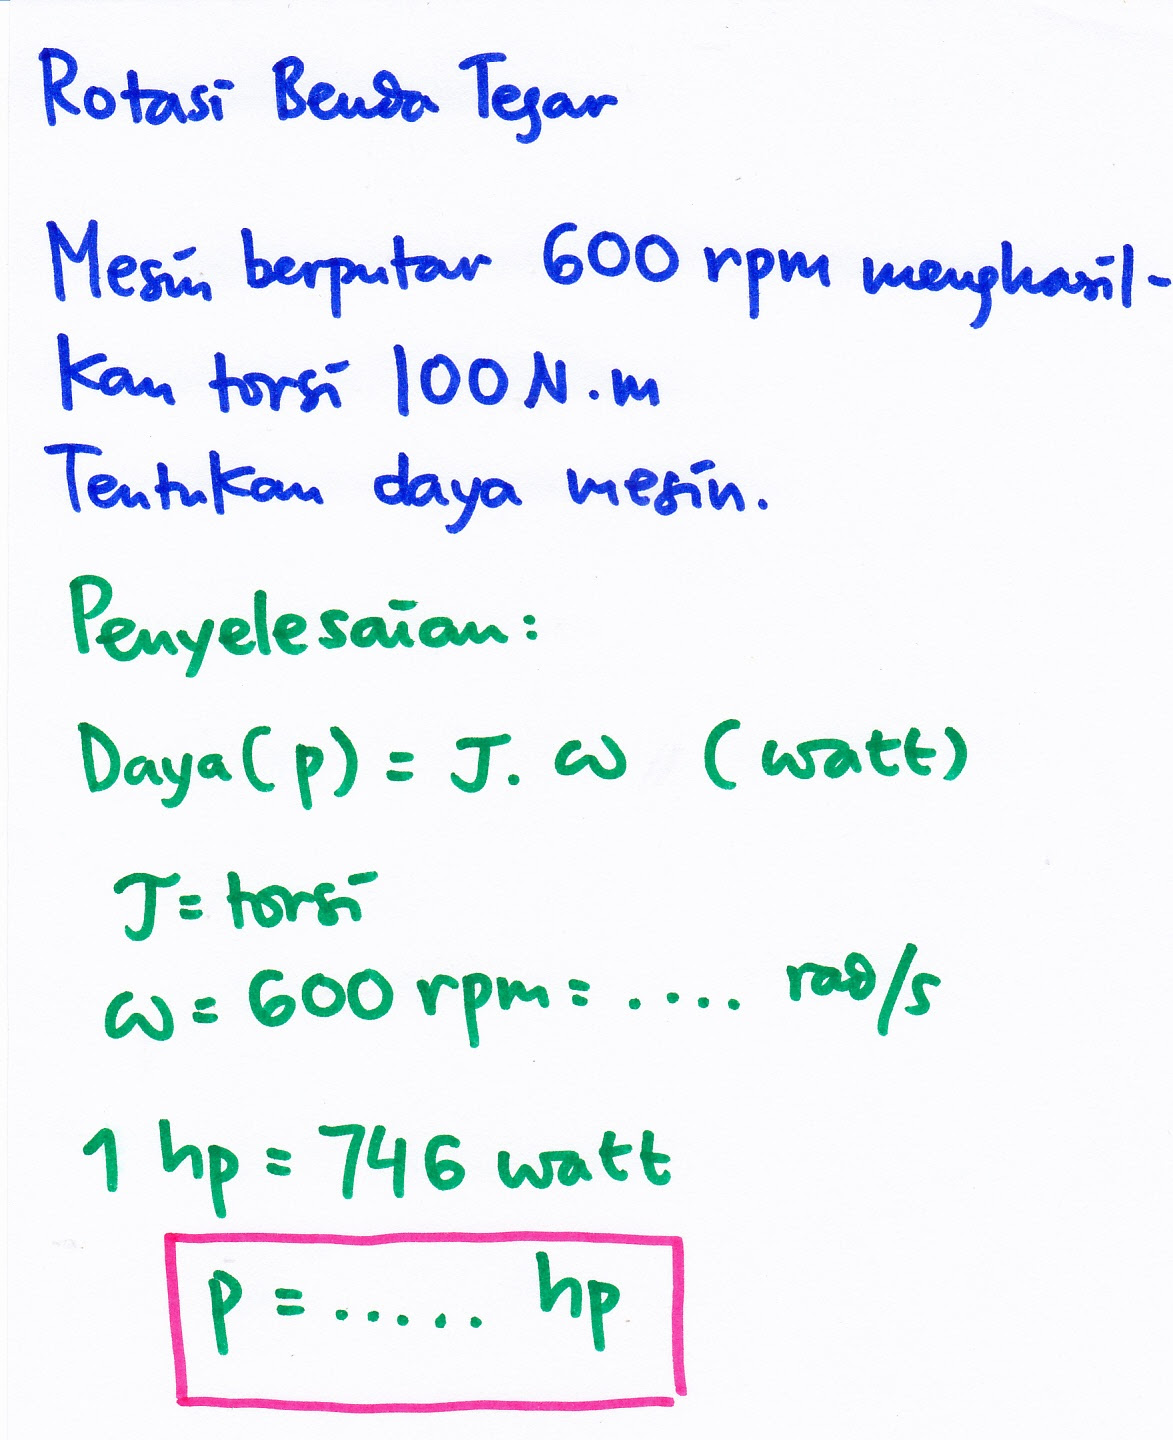 Rotasi Benda Tegar
Mesin berputar 600 rpm menghasil-
kan torsi 100 N.m
Tentukan daya mesin.
Penyelesaian:
Daya (p) = τ. ω (watt)
τ = torsi
ω = 600 rpm = .... rad/s
1 hp = 746 watt
p = ..... hp